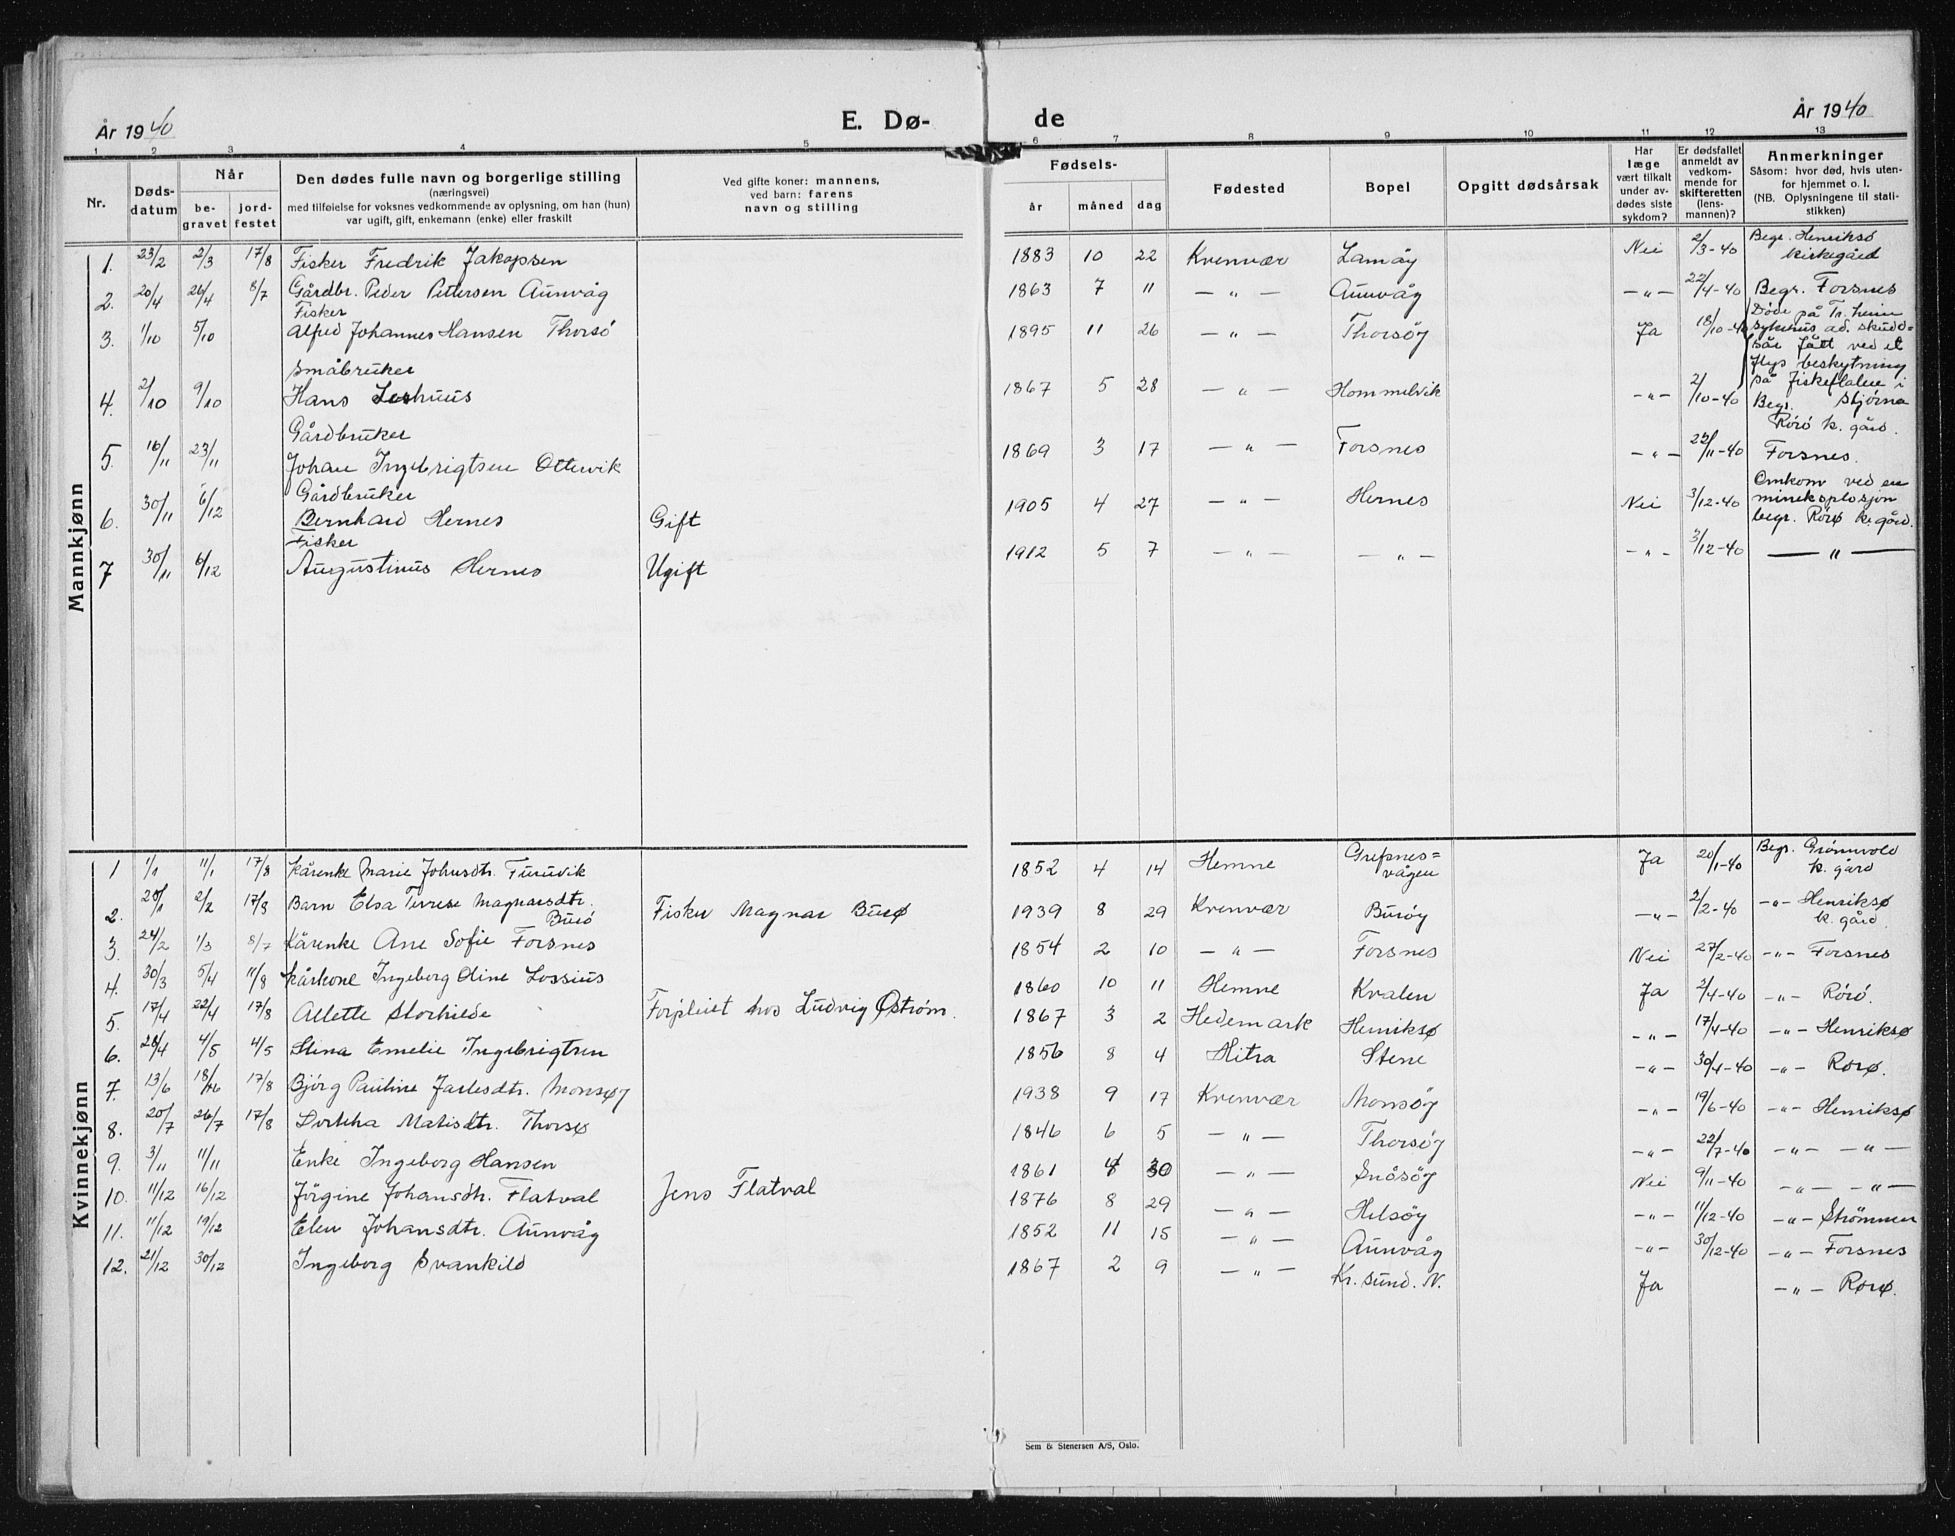 År 1940
E. Dø-
de
År 1940
1 2 3 4 5 6 7 8 9 10 11 12 13
Nr.
Døds-
datum
Når
be-
gravet
jord-
festet
Den dødes fulle navn og borgerlige stilling
(næringsvei)
med tilføielse for voksnes vedkommende av oplysning, om han (hun)
var ugift, gift, enkemann (enke) eller fraskilt
Ved gifte koner: mannens,
ved barn: farens
navn og stilling
Fødsels-
år måned dag
Fødested
Bopel
Opgitt dødsårsak
Har
læge
vært tilkalt
under av-
dødes siste
sykdom?
Er dødsfallet
anmeldt av
vedkom-
mende for
skifteretten
(lens-
mannen)?
Anmerkninger
Såsom: hvor død, hvis uten-
for hjemmet o. l.
(NB. Oplysningene til stati-
stikken)
Mannkjønn
1. 23/2 2/3 17/8 Fisker Fredrik Jakopsen 1883 10 22 Kvenvær Lamøy Nei 2/3-40 Begr. Henriksø
kirkegård
2. 20/4 26/4 8/7 Gårdbr. Peder Pettersen Aunvåg 1863 7 11 —„— Aunvåg —„— 22/4-40 Begr. Forsnes
Fisker
3. 1/10 5/10 Alfred Johannes Hansen Thorsø 1895 11 26 —„— Thorsøy Ja 18/10-40 Døde på Tr.heim
sykehus av skudd=
sår fått ved et
flys beskytning
på fiskeflåten i
Stjørna
Småbruker
4. 2/10 9/10 Hans 1867 5 28 —„— Hommelvik —„— 2/10-40 Begr.
Rørø k. gård.
Gårdbruker
5. 16/11 23/11 Johan Ingebrigtsen Ottervik 1869 3 17 —„— Forsnes —„— 22/11-40 Forsnes.
Gårdbruker
6. 30/11 6/12 Bernhard Hernes Gift 1905 4 27 —„— Hernes Nei 3/12-40 Omkom ved en
mineksplosjon
begr. Rørø k. gård.
Fisker
7 30/11 6/12 Augustinus Hernes Ugift 1912 5 7 —„— —„— —„— 3/12-40 —„—
Kvinnekjønn
1 1/1 11/1 17/8 Kårenke Marie Johnsdtr. Furuvik 1852 4 14 Hemne Grefsnes=
vågen Ja 20/1-40 Begr. Grønnvold
k. gård
2. 2/2 17/8 Barn Elsa Terese Magnarsdtr.
Burø Fisker Magnar Burø 1939 8 29 Kvenvær Burøy —„— 2/2-40 —„— Henriksø
k. gård.
3. 24/2 1/3 8/7 Kårenke Ane Sofie Forsnes 1854 2 10 —„— Forsnes Nei 27/2-40 —„— Forsnes
4. 30/3 5/4 11/8 Kårkone Ingeborg Oline Lossius 1860 10 11 Hemne Kvalen Ja 2/4-40 —„— Rørø.
5. 17/4 22/4 17/8 Alette Storhilde Forpleiet hos Ludvig Østrøm. 1867 3 2 Hedemark Henriksø —„— 17/4-40 —„— Henriksø
6. 28/4 4/5 4/5 Stina Emelie Ingebrigtsen 1856 8 4 Hitra Stene —„— 30/4-40 —„— Rørø.
7. 13/6 18/6 17/8 Bjørg Pauline Jarlesdtr. Monsøy 1938 9 17 Kvenvær Monsøy —„— 19/6-40 —„— Henriksø
8. 20/7 26/7 17/8 Dortha Matisdtr. Thorsø 1846 6 5 —„— Thorsøy —„— 22/7-40 —„— —„—
9. 3/11 11/11 Enke Ingeborg Hansen 1861 30 —„— Snåsøy Nei 9/11-40 —„— —„—
10. 11/12 16/12 Jørgine Johansdtr. Flatval Jens Flatval 1876 8 29 —„— Helsøy —„— 11/12-40 —„— Strømmen
11. 11/12 19/12 Elen Johansdtr. Aunvåg 1852 11 15 —„— Aunvåg —„— 30/12-40 —„— Forsnes
12. 21/12 30/12 Ingeborg Svankild 1867 2 9 —„— Kr.sund. N. Ja —„— Rørø.
Sem & Stenersen A/S, Oslo.